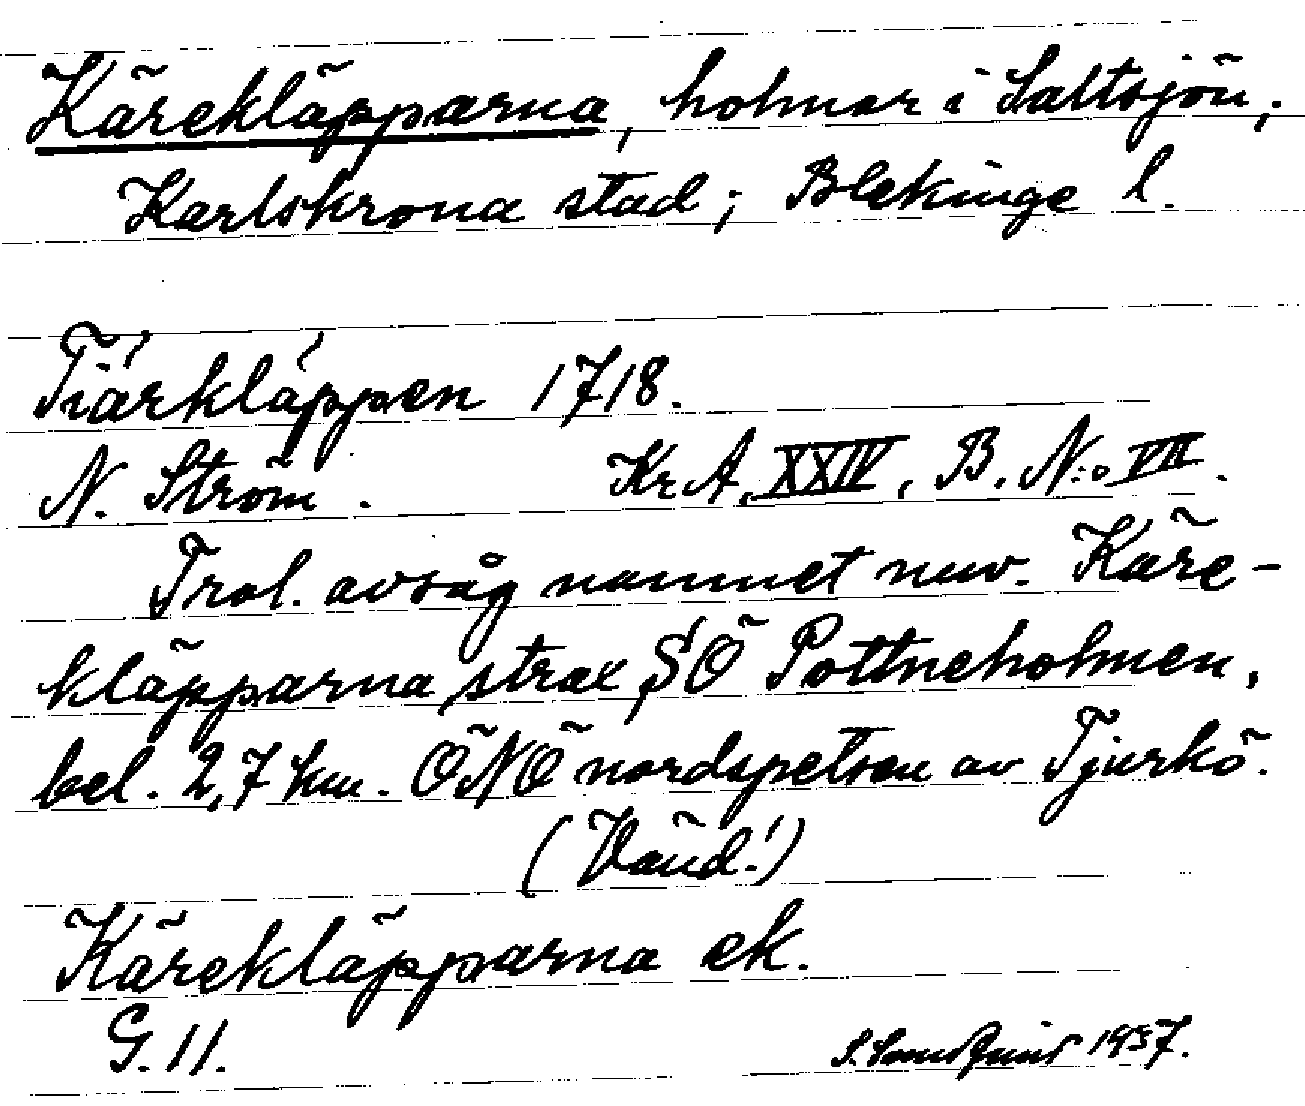 Kärekläpparna, holmar i Saltsjön;
Karlskrona stad; Blekinge l.
Tiärkläppen 1718.
N. Ström. Kr.A. XXIV, B. N:o VII.
Trol. avsåg namnet nuv. Käre-
kläpparna, strax SÖ Pottneholmen,
bel. 2,7 km. ÖNÖ nordspetsen av Tjurkö.
(Vänd!)
Kärekläpparna ek.
G.11.
1937.